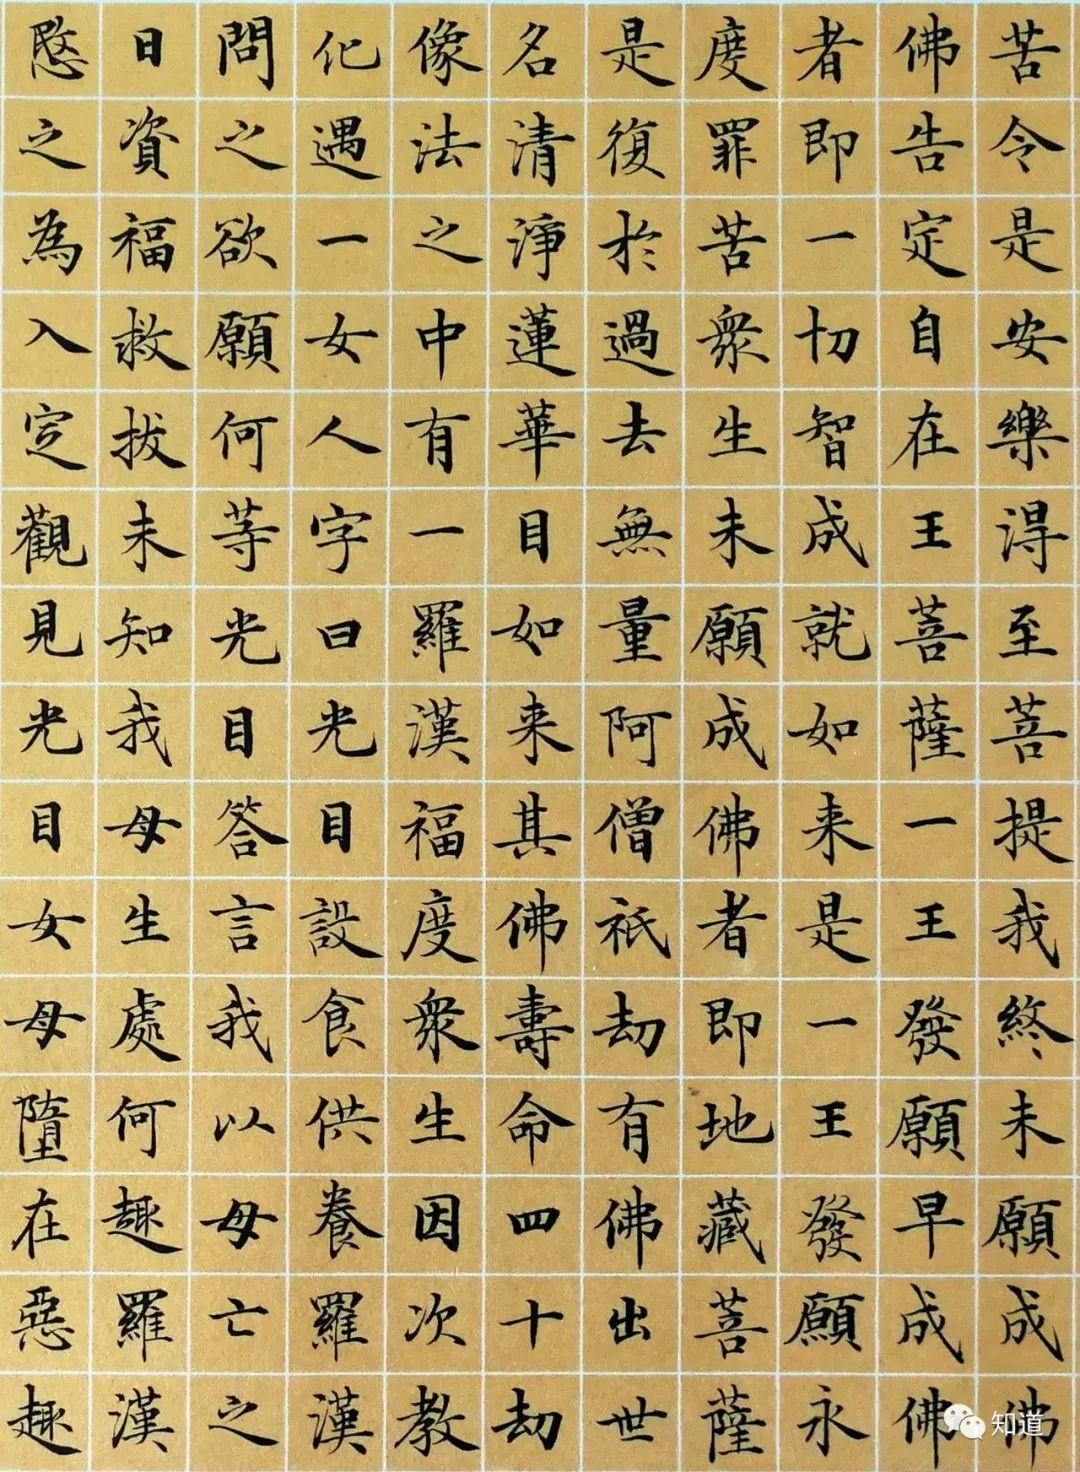 苦令是安樂得至菩提我終未願成佛
佛告定自在王菩薩一王發願早成佛
者即一切智成就如来是一王發願永
度罪苦衆生未願成佛者即地藏菩薩
是復於過去無量阿僧祇劫有佛出世
名清淨蓮華目如来其佛壽命四十劫
像法之中有一羅漢福度衆生因次教
化遇一女人字曰光目設食供養羅漢
問之欲願何等光目答言我以母亡之
日資福救拔未知我母生處何趣羅漢
愍之為入定觀見光目女母墮在惡趣
知道